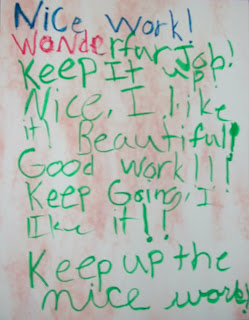 Nice work!
Wonderfur Job!
Keep It up
Nice, I like
it! Beautiful!
Good work!!!
Keep Going, I
like it!!
Keep up the
nice work!